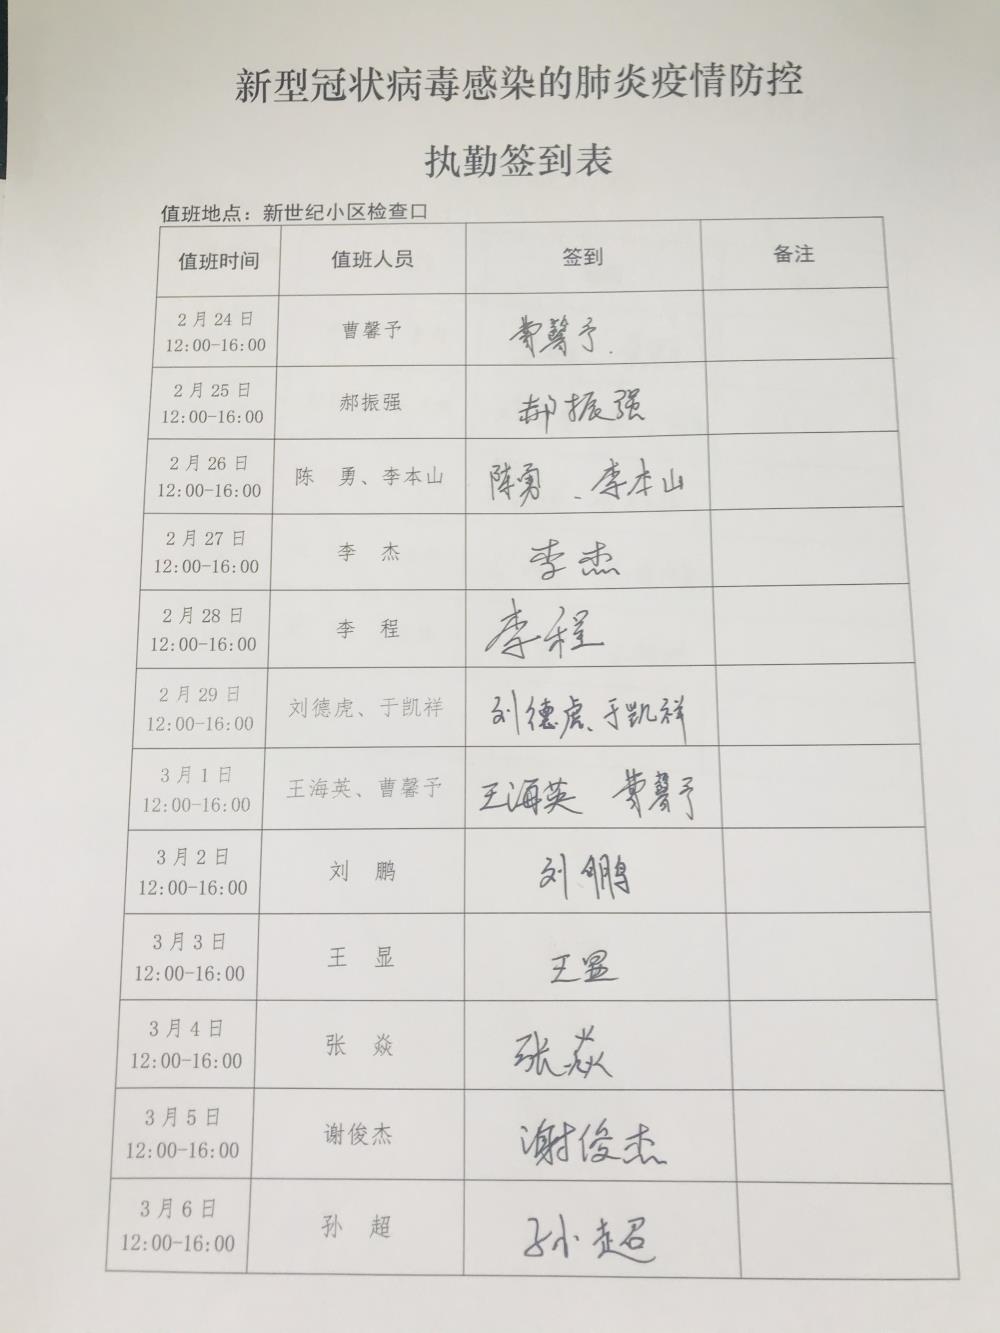 新型冠状病毒感染的肺炎疫情防控
执勤签到表
值班地点：新世纪小区检查口
值班时间 值班人员 签到 备注
2月24日
12:00-16:00 曹馨予 曹馨予.
2月25日
12:00-16:00 郝振强 郝振强
2月26日
12:00-16:00 陈 勇、李本山 陈勇、李本山
2月27日
12:00-16:00 李 杰 李杰
2月28日
12:00-16:00 李 程 李程
2月29日
12:00-16:00 刘德虎、于凯祥 刘德虎、于凯祥
3月1日
12:00-16:00 王海英、曹馨予 王海英 曹馨予
3月2日
12:00-16:00 刘 鹏 刘鹏
3月3日
12:00-16:00 王 显 王显
3月4日
12:00-16:00 张 焱 张焱
3月5日
12:00-16:00 谢俊杰 谢俊杰
3月6日
12:00-16:00 孙 超 孙超